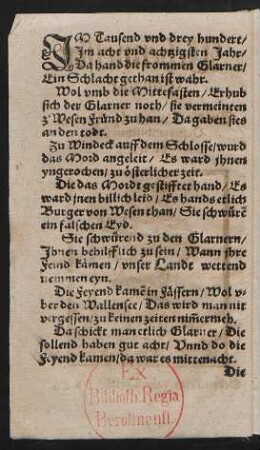 IM Tausend vnd drey hundert/
Im acht vnd achtzigsten Jahr/
Da hand die frommen Glarner/
Ein Schlacht gethan ist wahr.
Wol vmb die Mittefasten/ Erhub
sich der Glarner noth/ sie vermeinten
z'Wesen Fründ zu han/ Da gaben sies
an den todt.
Zu Windeck auff dem Schlosse/ wurd
das Mord angeleit/ Es ward jhnen
yngerochen/ zu österlicher zeit.
Die das Mordt gestifftet hand/ Es
ward jnen billich leid/ Es hands etlich
Burger von Wesen than/ Sie schwürẽ
ein falschen Eyd.
Sie schwürend zu den Glarnern/
Jhnen behilfflich zu sein/ Wann jhre
Feind kämen/ vnser Landt wettend
nemmen eyn.
Die Feyend kamẽ in Fässern/ Wol v-
ber den Wallensee/ Das wird man nit
vergessen/ zu keinen zeiten nim̃ermeh.
Da schickt man etlich Glarner/ Die
sollend haben gut acht/ Vnnd do die
Feyend kamen/ da war es mittenacht.
Die
Ex
Biblioth. Regia
Berolinensi.